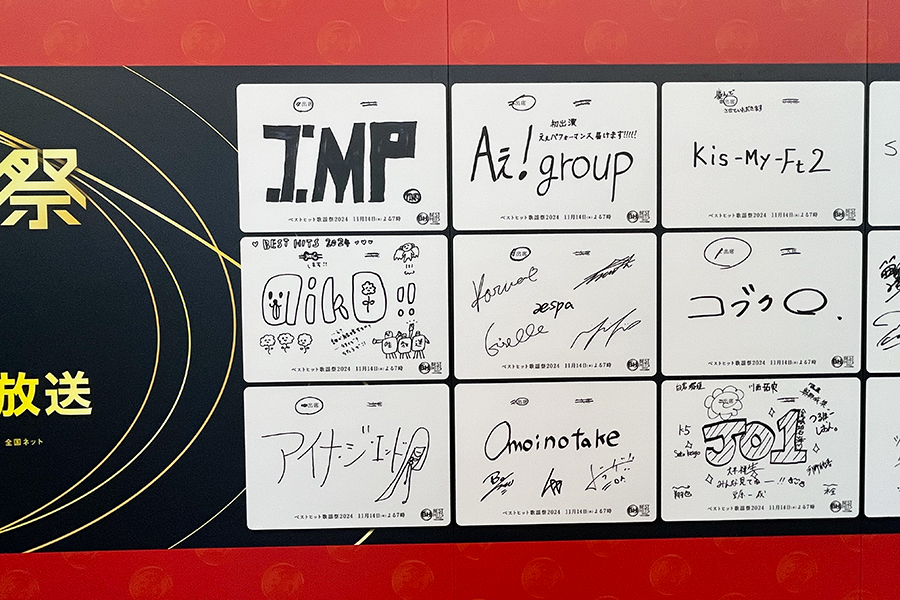 祭
放送
全国ネット
出席
I.MP
ベストヒット歌謡祭2024 11月14日(木)よる7時
BH
出席
初出演
えぇパフォーマンス届けます!!!!!
Aぇ! group
ベストヒット歌謡祭2024 11月14日(木)よる7時
BH
喜んで
出席
させていただきます
Kis-My-Ft2
ベストヒット歌謡祭2024 11月14日(木)よる7時
BH
S
♡ BEST HITS 2024 ♡♡♡
します!!
aiko!!
ベストヒット歌謡祭2024 11月14日(木)よる7時
BH
出席
Karina
aespa
Giselle
ベストヒット歌謡祭2024 11月14日(木)よる7時
BH
出席
コブクロ.
ベストヒット歌謡祭2024 11月14日(木)よる7時
BH
出席
アイナ・ジ・エンド
ベストヒット歌謡祭2024 11月14日(木)よる7時
BH
出席
Omoinotake
ベストヒット歌謡祭2024 11月14日(木)よる7時
BH
白岩瑠姫
川西拓実
出席
JO1
みんな見てねー!!
ベストヒット歌謡祭2024 11月14日(木)よる7時
BH